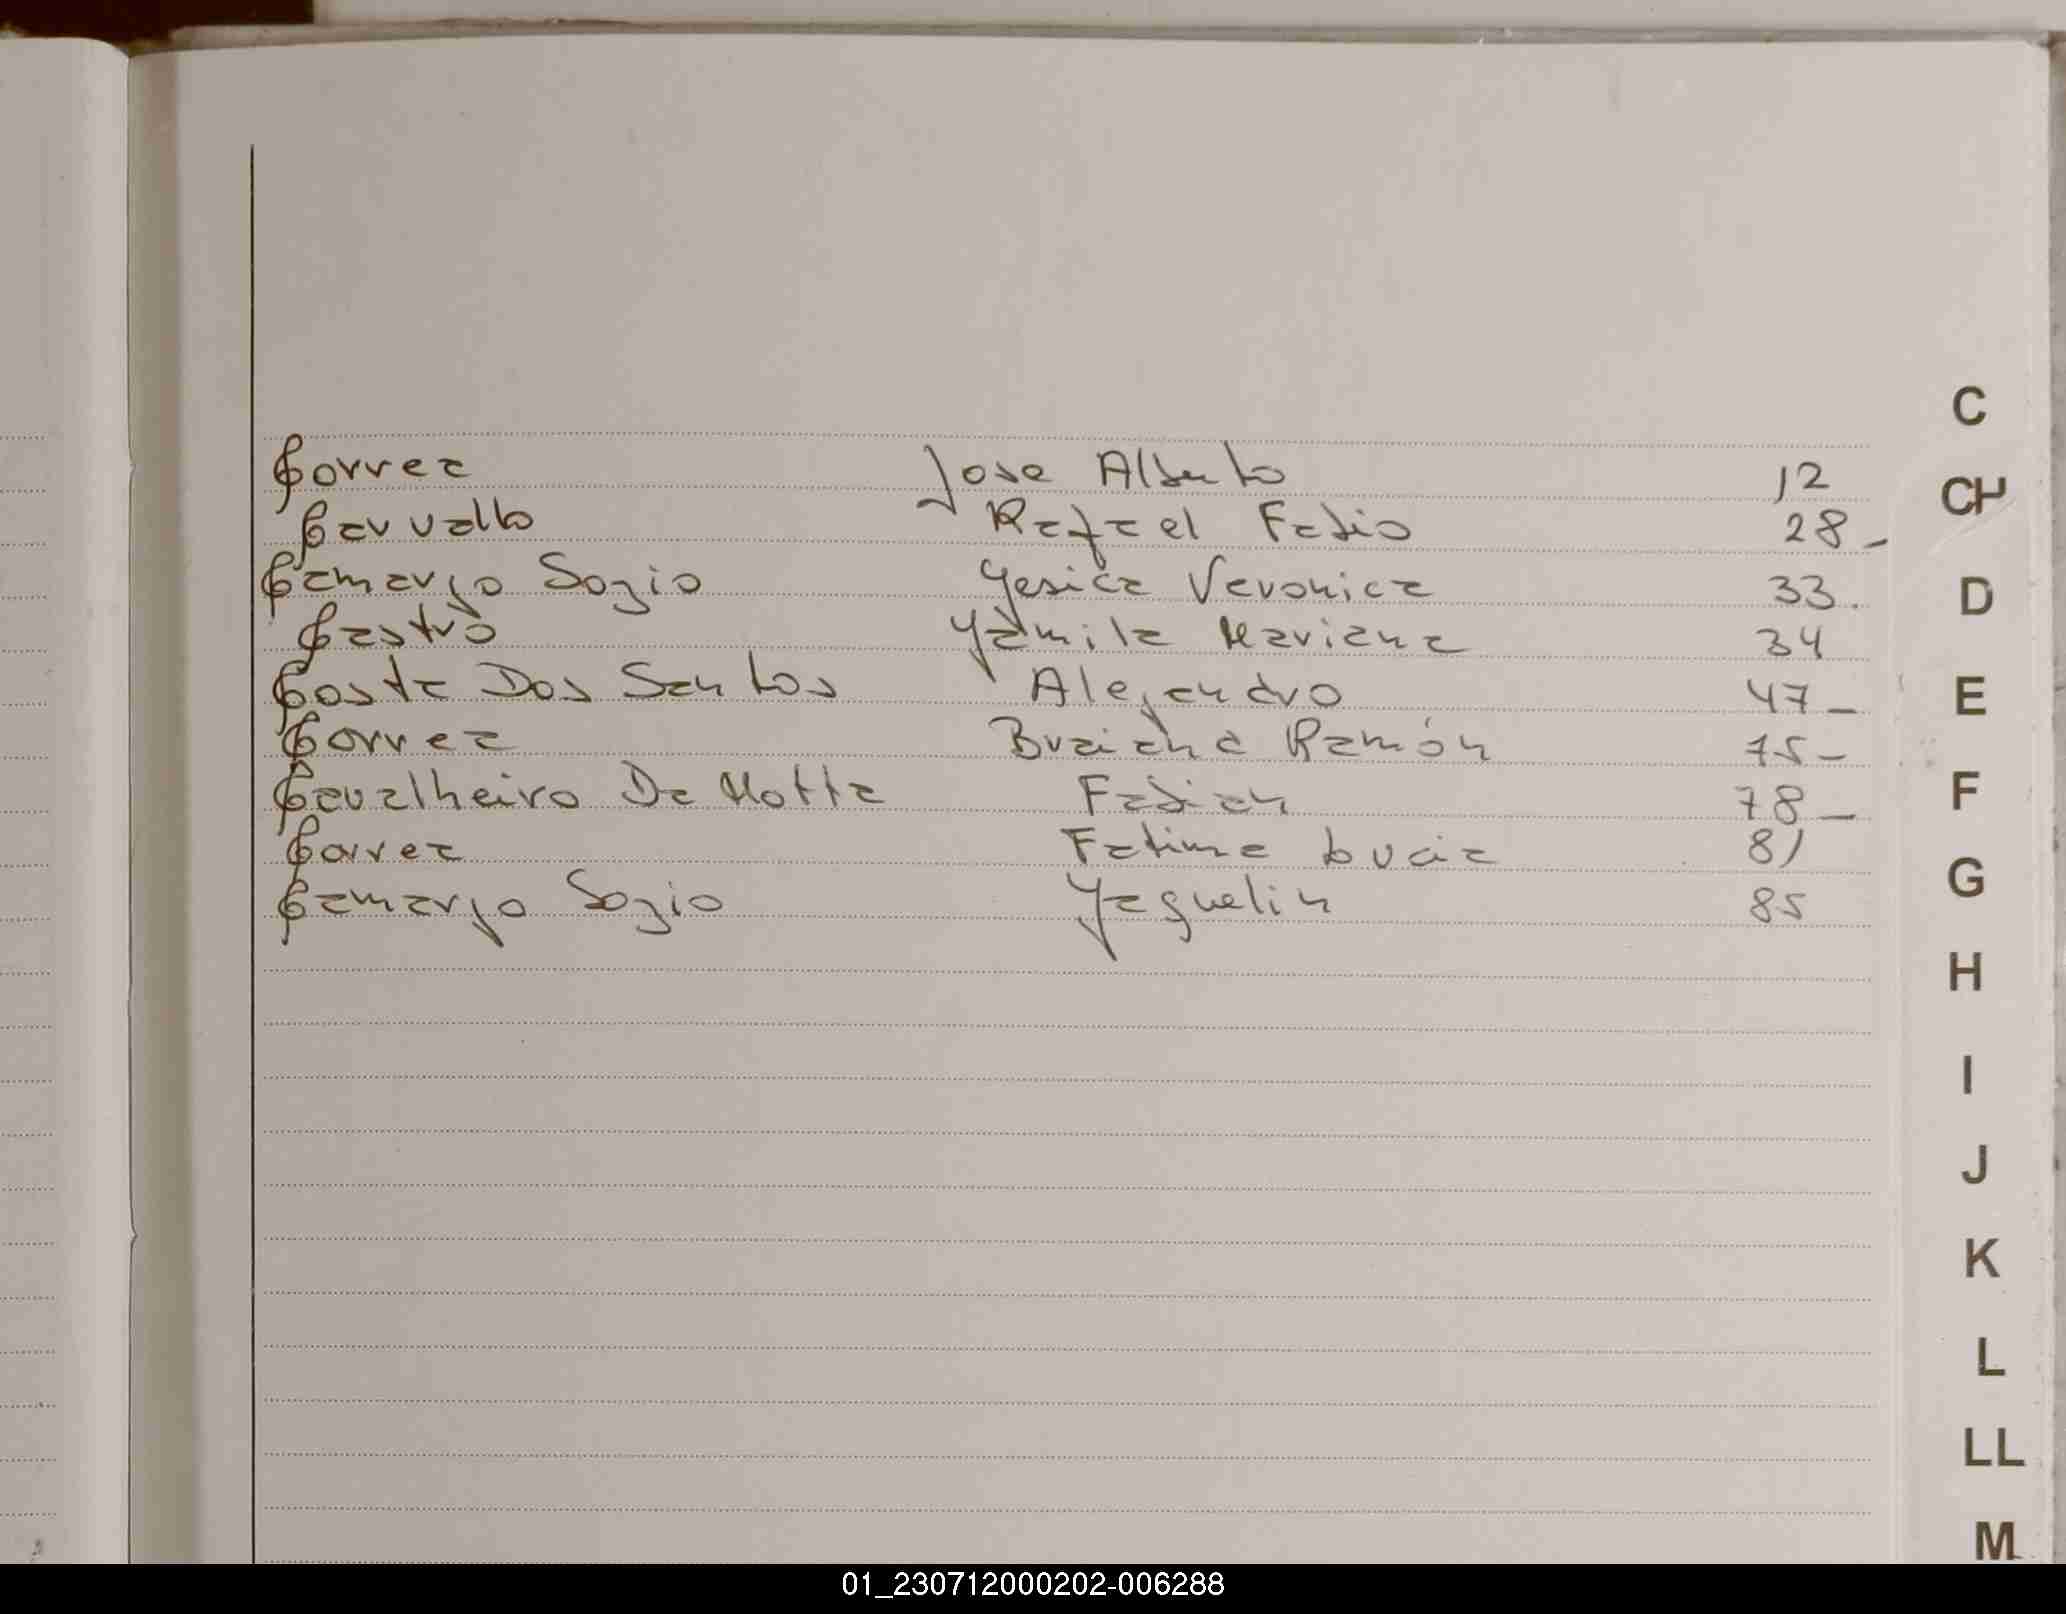 C
Correa Jose Alberto 12
CH
Carvallo Rafael Fabio 28 -
Camargo Sozio Yesica Veronica 33.
D
Castro Yamila Mariana 34
Costa Dos Santos Alejandro 47 -
E
Correa Braiana Ramón 75 -
Cavalheiro Da Motta Fabian 78 -
F
Correa Fatima Lucia 81
G
Camargo Sozio Yaquelin 85
H
I
J
K
L
LL
M
01_230712000202-006288